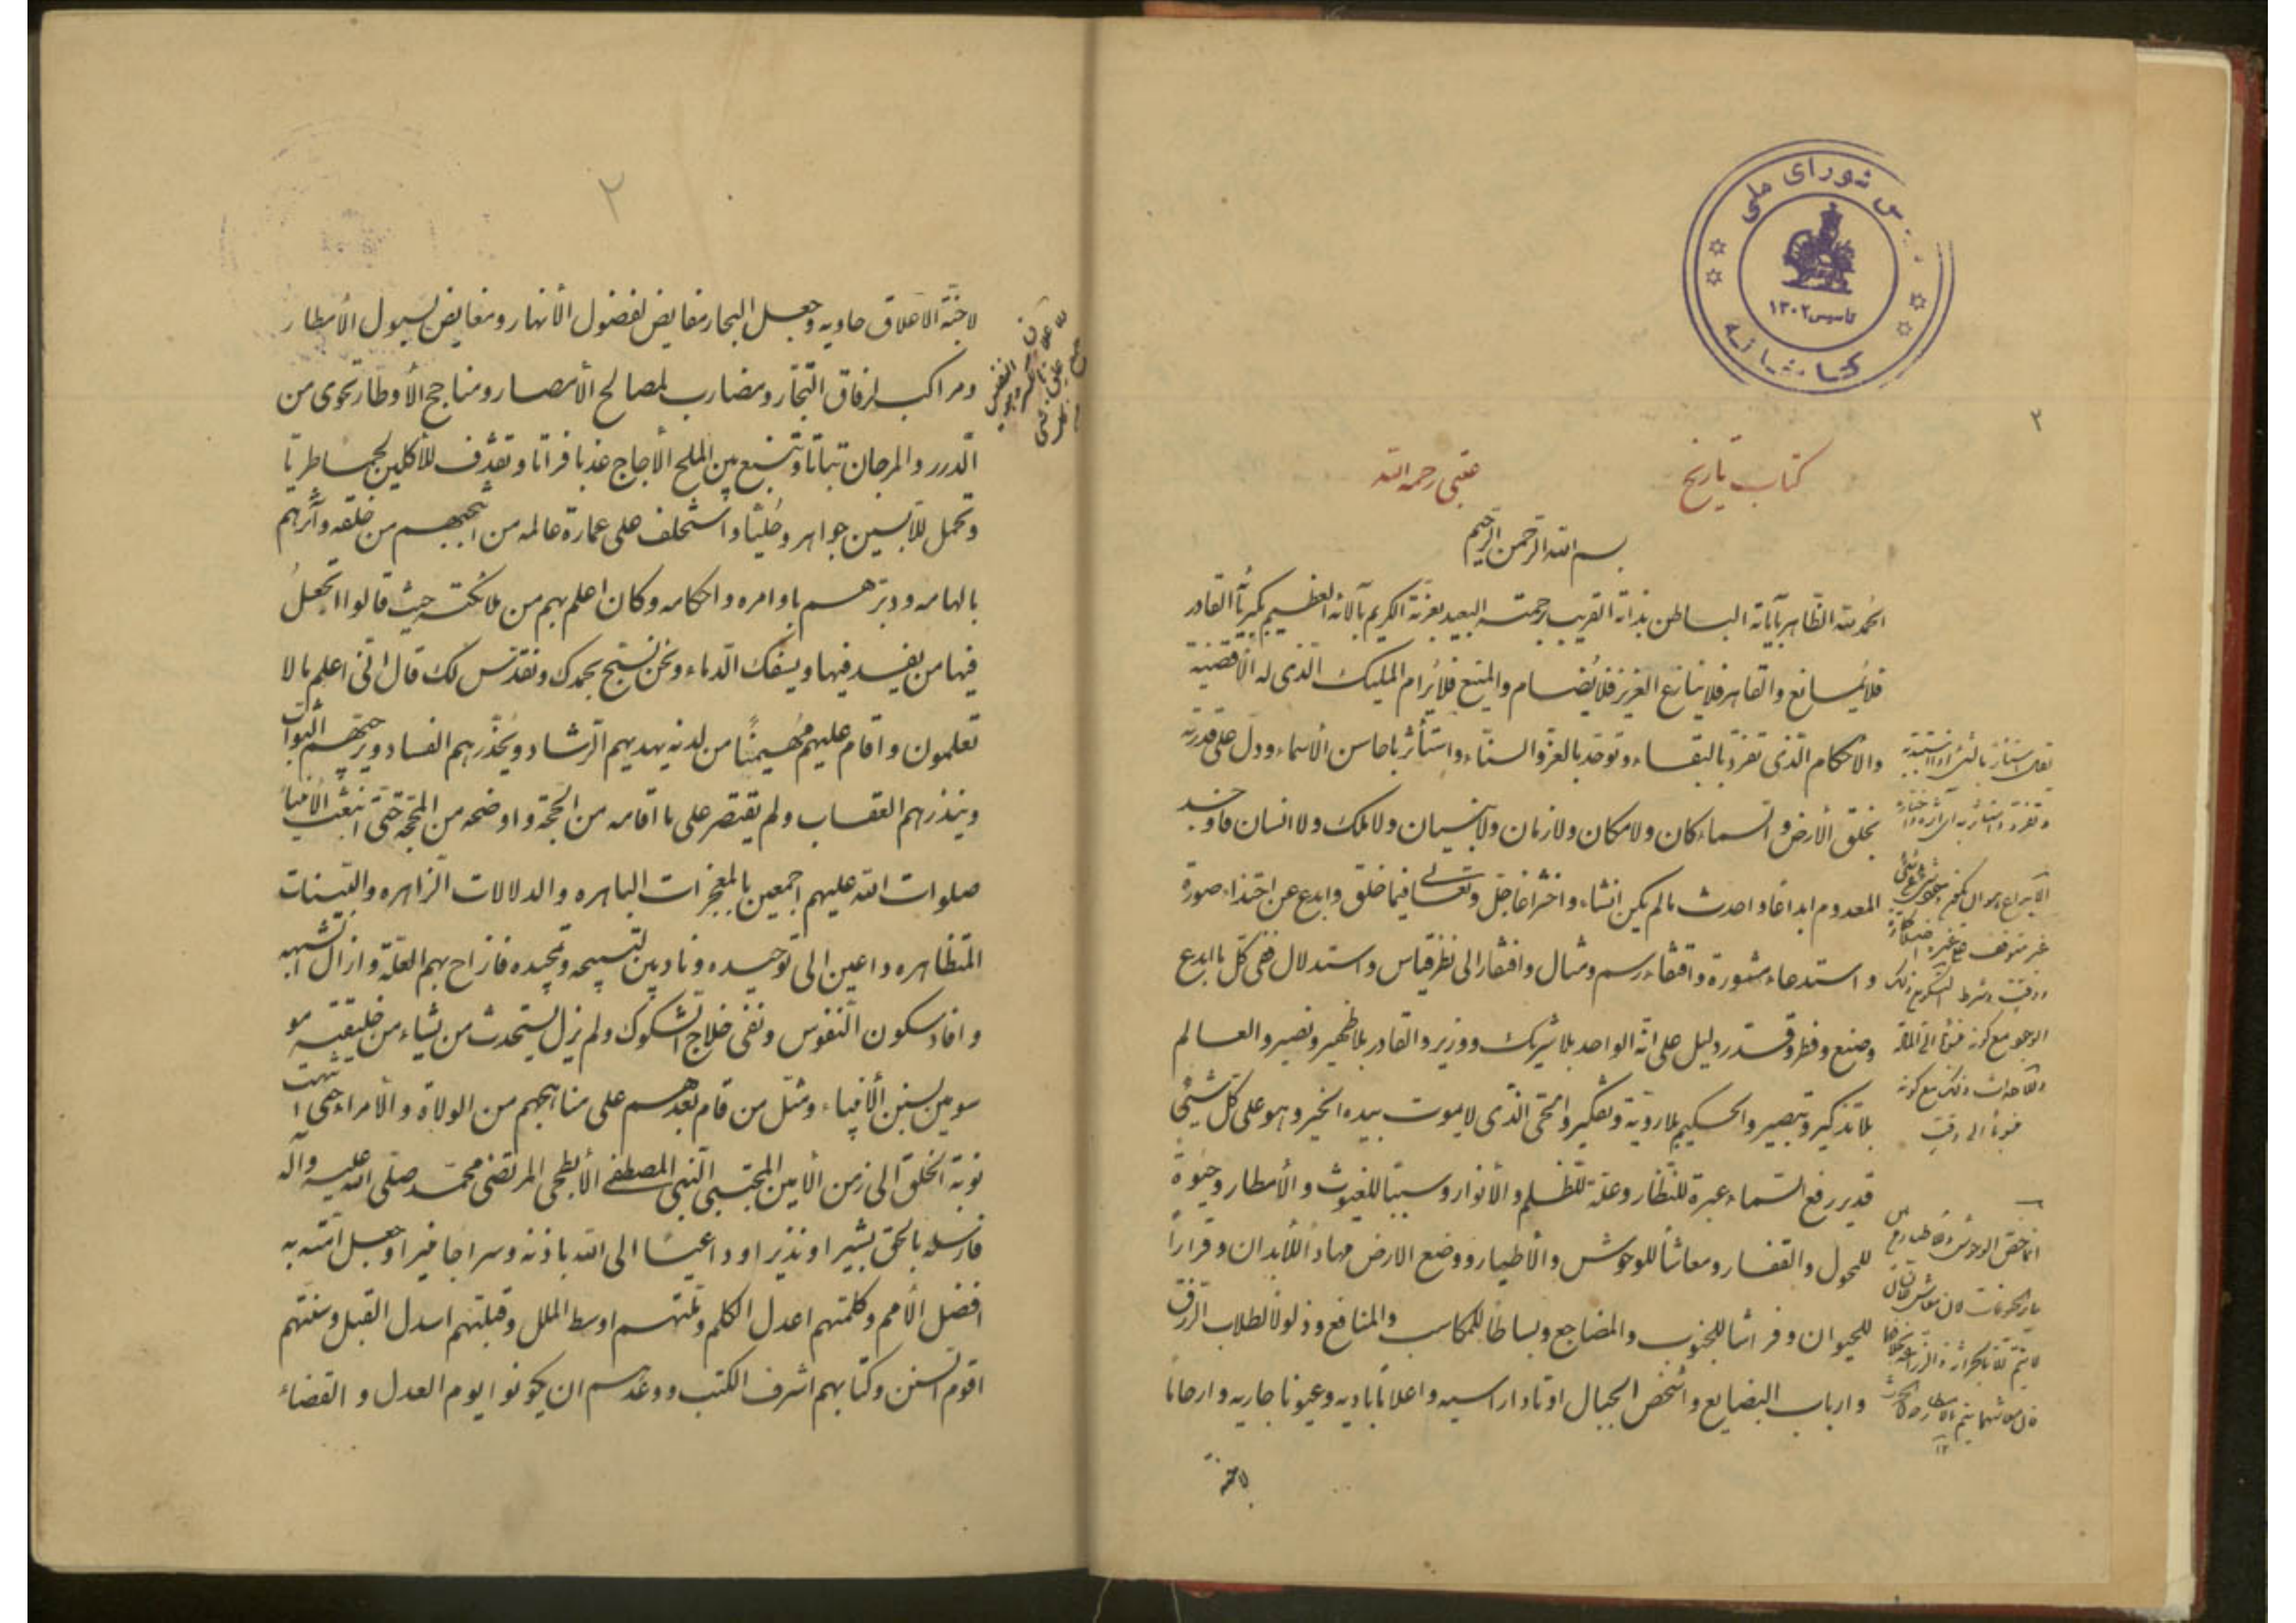 مجلس شورای ملی
تاسیس ۱۳۰۲
کتابخانه
۲
کتاب تاریخ عتبی رحمه الله
بسم الله الرحمن الرحیم
الحمد لله الظاهر بآیاته الباطن بذاته القریب برحمته البعید بعزته الکریم بآلائه العظیم بکبریائه القادر
فلا یمانع والقاهر فلا ینازع العزیز فلا یضام والمنیع فلا یرام الملیک الذی له الاقضیة
والاحکام الذی تفرد بالبقاء وتوحد بالعز والسناء واستأثر باحاسن الأسماء ودل علی قدرته
بخلق الأرض والسماء کان ولا مکان ولا زمان ولا بنیان ولا ملک ولا انسان فاوجد
المعدوم ابداعا واحدث ما لم یکن انشاء واختراعا جل وتعالی فیما خلق وابدع عن احتذاء صورة
واستدعاء مشورة واقتفاء رسم ومثال وافتقار الی نظر قیاس واستدلال ففی کل ما ابدع
وصنع وفطر وقدر دلیل علی انه الواحد بلا شریک ووزیر والقادر بلا ظهیر ونصیر والعالم
بلا تذکیر وتبصیر والحکیم بلا رویة وتفکیر والحی الذی لا یموت بیده الخیر وهو علی کل شیئ
قدیر رفع السماء عبرة للنظار وعلة للظلم والأنوار وسببا للغیوث والأمطار وحیوة
للمحول والقفار ومعاشا للوحوش والأطیار ووضع الارض مهادا للأبدان وقرارا
للحیوان وفراشا للجنوب والمضاجع وبساطا للمکاسب والمنافع وذلولا لطلاب الرزق
وارباب البضایع واشخص الجبال اوتادا راسیه واعلاما بادیه وعیونا جاریه وارحاما
لاجنة
۲
لاجنة الاعلاق حاویه وجعل البحار مغایض لفضول الأنهار ومغایض لسیول الأمطار
ومراکب لرفاق التجار ومضارب لمصالح الأمصار ومناجح الأوطار تحوی من
الدرر والمرجان نباتا وتنبع بین الملح الأجاج عذبا فراتا وتقذف للآکلین لحما طریا
وتحمل للابسین جواهر وحلیا واستخلف علی عمارة عالمه من انتجبهم من خلقه وآثرهم
بالهامه ودبرهم باوامره واحکامه وکان اعلم بهم من ملائکته حیث قالوا اتجعل
فیها من یفسد فیها ویسفک الدماء ونحن نسبح بحمدک ونقدس لک قال انی اعلم ما لا
تعلمون واقام علیهم مهیمنا من لدنه یهدیهم الرشاد ویحذرهم الفساد ویرجیهم الثواب
وینذرهم العقاب ولم یقتصر علی ما اقامه من الحجة واوضحه من المحجة حتی ابتعث الأنبیاء
صلوات الله علیهم اجمعین بالمعجزات الباهره والدلالات الزاهره والبینات
المتظاهره داعین الی توحیده ونادبین لتسبیحه وتمجیده فازاح بهم العلة وازال الشبهه
وافاد سکون النفوس ونفی خلاج الشکوک ولم یزل یستحدث من یشاء من خلیقته مو
سومین بسنن الأنبیاء ومثل من قام بعدهم علی مناهجهم من الولاة والأمراء حتی انتهت
نوبة الخلق الی زمن الأمین المجتبی النبی المصطفی الأبطحی المرتضی محمد صلی الله علیه وآله
فارسله بالحق بشیرا ونذیرا وداعیا الی الله باذنه وسراجا منیرا وجعل امته
افضل الأمم وکلمتهم اعدل الکلم وملتهم اوسط الملل وقبلتهم اسدل القبل وسنتهم
اقوم السنن وکتابهم اشرف الکتب ووعدهم ان یکونوا یوم العدل والقضاء